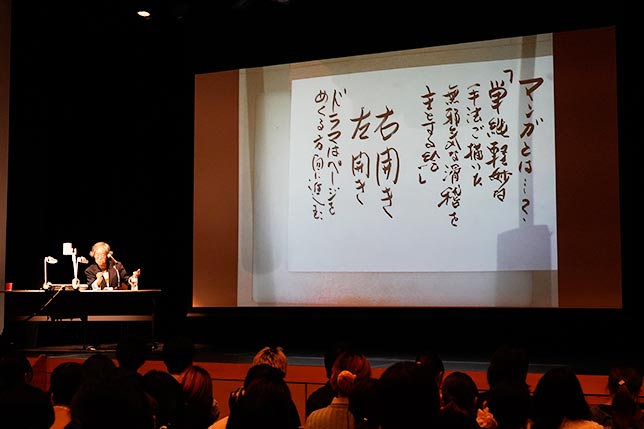 マンガとは…?
「単純軽妙な
手法で描いた
無邪気な滑稽を
主とする絵」
右開き
左開き
ドラマはページを
めくる方向に進む